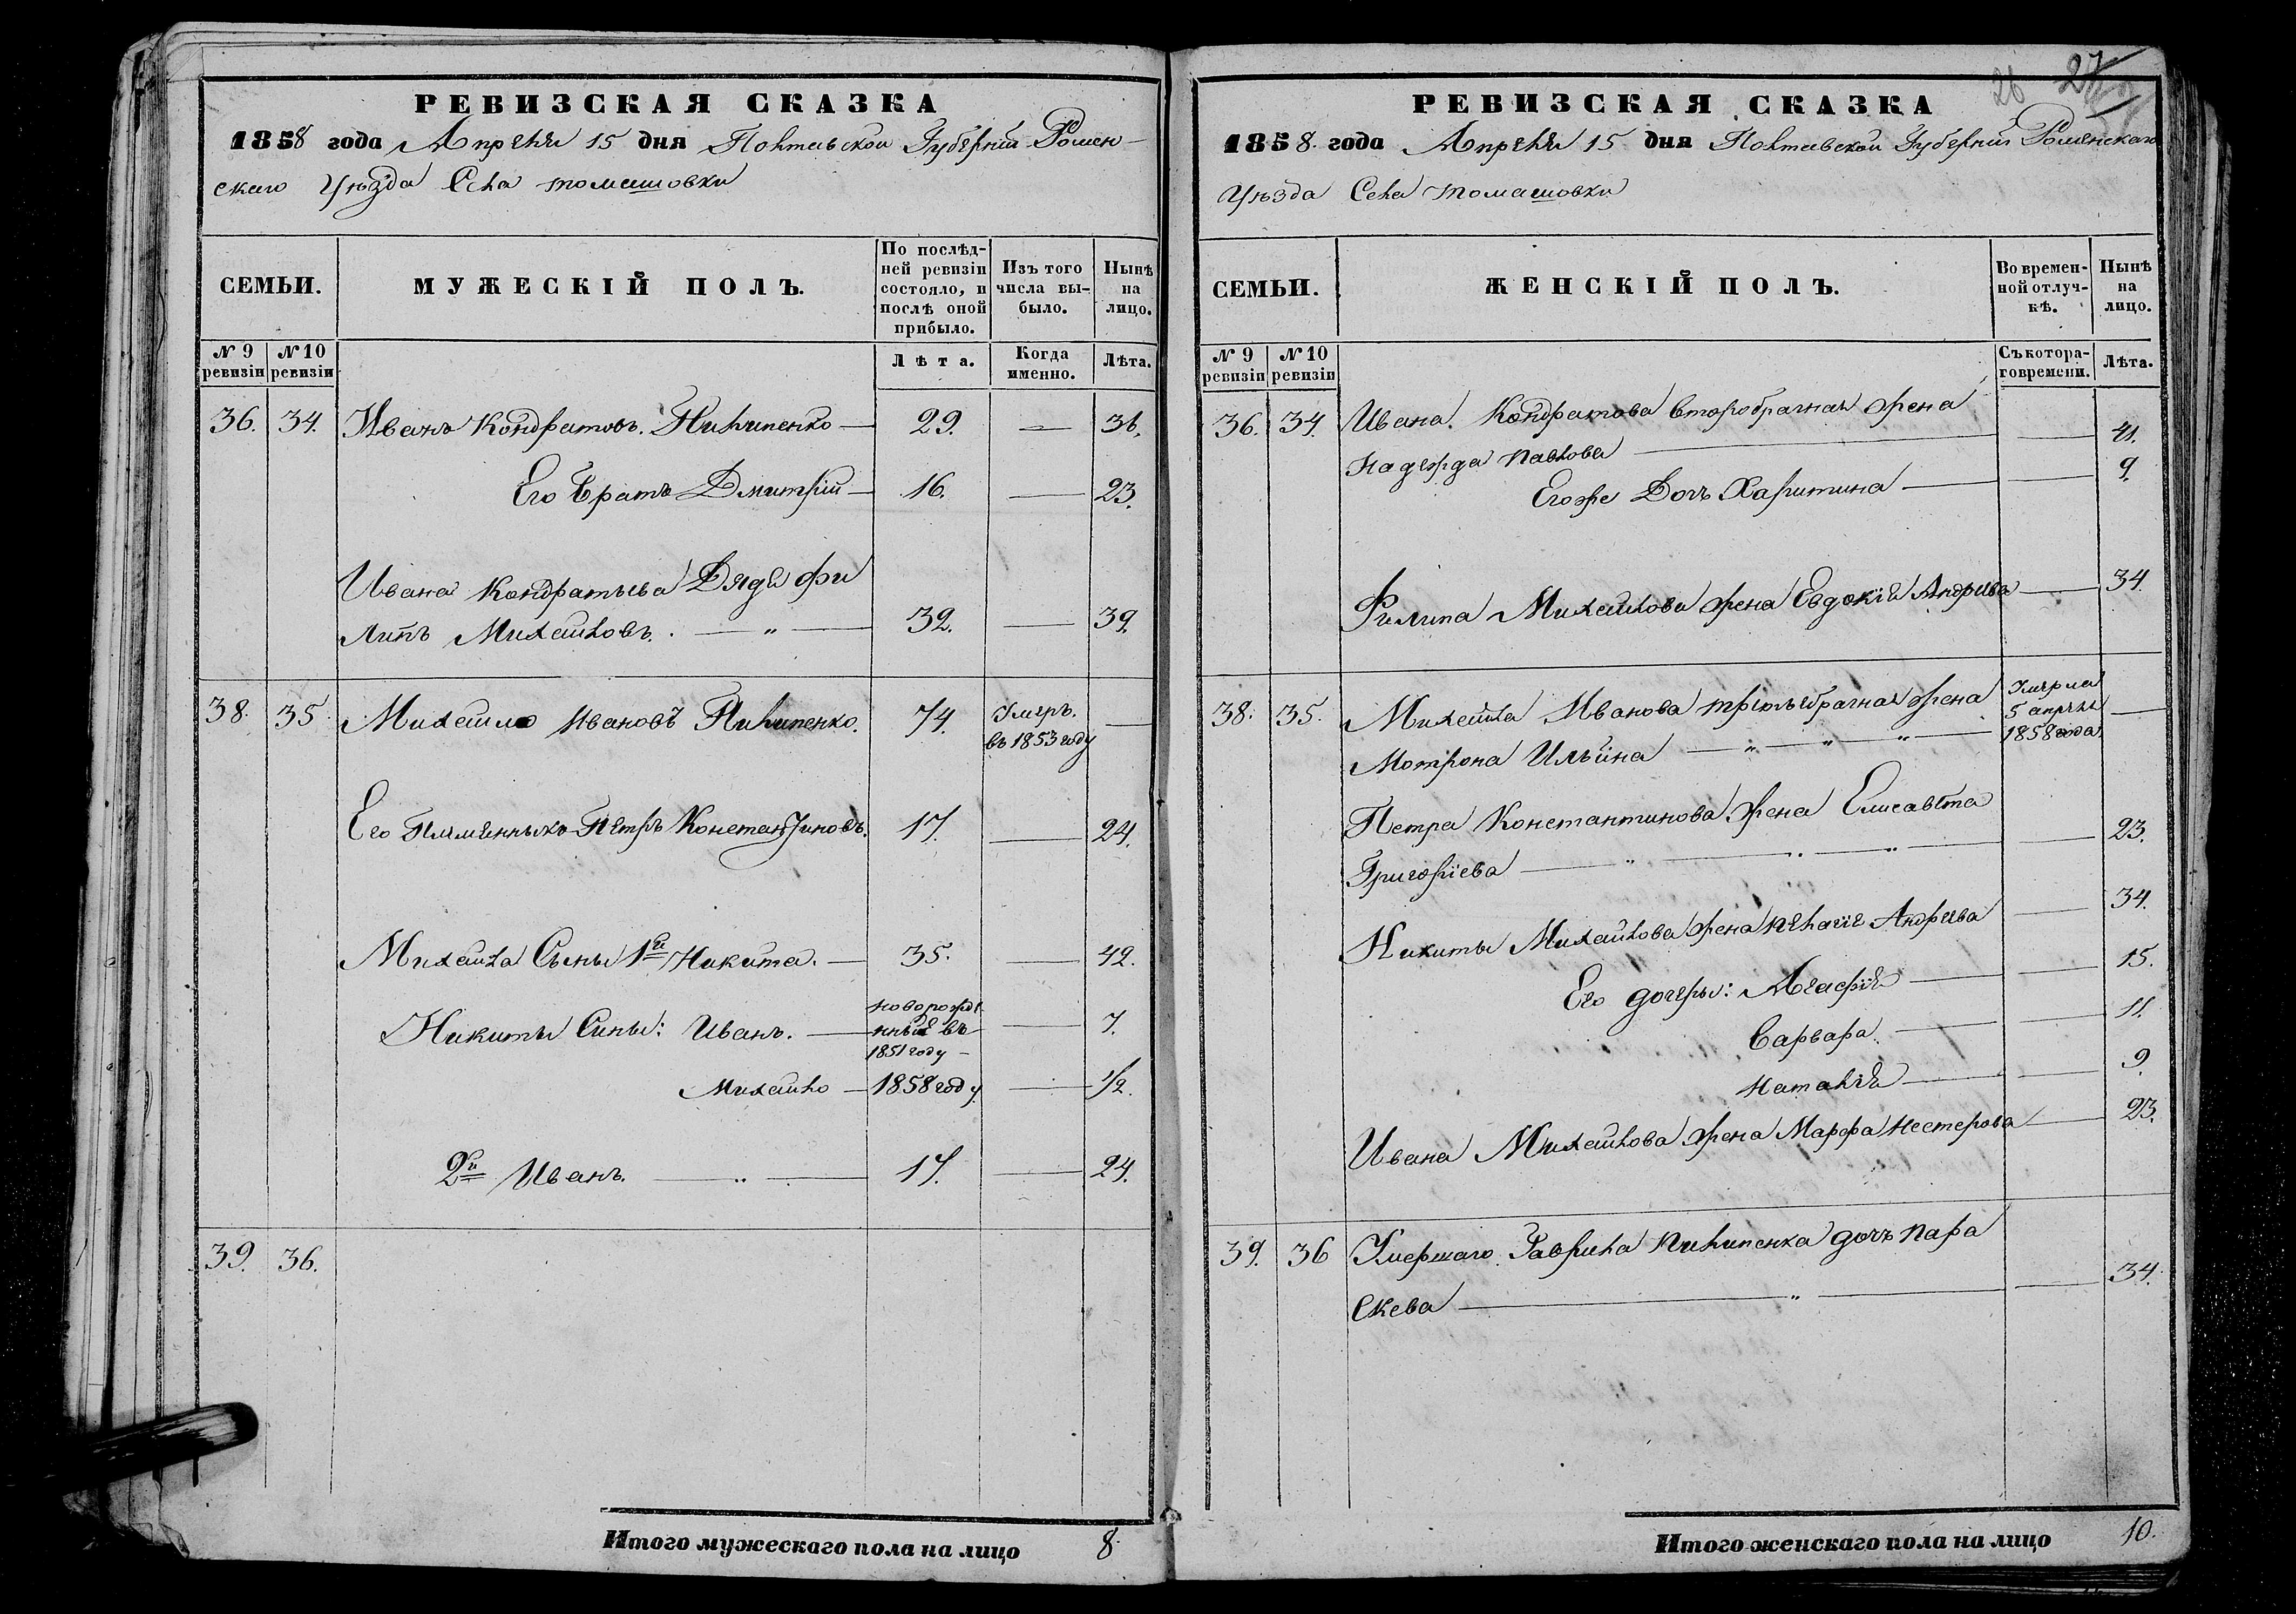 РЕВИЗСКАЯ СКАЗКА
1858 года Апреля 15 дня Полтавской Губерніи Ромен-
скаго Уѣзда Села томашовки
СЕМЬИ.
МУЖЕСКІЙ ПОЛЪ.
По послѣд-
ней ревизіи
состояло, и
послѣ оной
прибыло.
Изъ того
числа вы-
было.
Нынѣ
на
лицо.
№ 9
ревизіи
№ 10
ревизіи
Лѣта.
Когда
именно.
Лѣта.
36. 34. Иванъ Кондратовъ Пилипенко — 29. — 36.
Его Братъ Дмитрій — 16. — 23.
Ивана Кондратьева Дядя Фи
липъ Михайловъ. — „ — 32. — 39.
38. 35. Михайло Ивановъ Пилипенко. 74. Умеръ. —
въ 1853 году
Его Племенныкъ Петръ Константиновъ. 17. — 24.
Михайла Сыны 1й Никита. — 35. — 42.
Никиты Сины: Иванъ. — новорожде
нные въ — 7.
1851 году —
Михайло — 1858 году — 1/2.
2й Иванъ. — „ — 17. — 24.
39. 36.
Итого мужескаго пола на лицо 8.
26 27
РЕВИЗСКАЯ СКАЗКА
1858. года Апреля 15 дня Полтавской Губерніи Роменскаго
Уѣзда Села томашовки
СЕМЬИ.
ЖЕНСКІЙ ПОЛЪ.
Во времен-
ной отлуч-
кѣ.
Нынѣ
на
лицо.
№ 9
ревизіи
№ 10
ревизіи
Съ котора-
го времени.
Лѣта.
36. 34. Ивана Кондратова второбрачная жена
Надежда павлова — — 41.
Егоже Дочъ Харитина — — 9.
Филипа Михайлова жена Евдокія Андреева — 34.
38. 35. Михайла Иванова третьебрачная жена Умерла
5 апреля —
Мотрона Ильина — „ — „ — „ — 1858 года
Петра Константинова жена Елисавета
Григоріева — „ — „ — „ — — 23.
Никиты Михайлова жена пелагія Андреева — 34.
Его дочеры: Агафія — — 15.
Варвара. — — 11.
Наталія — — 9.
Ивана Михайлова жена Марфа Нестерова — 23.
39. 36 Умершаго Гаврила пилипенка дочъ пара
скева — „ — — 34.
Итого женскаго пола на лицо 10.